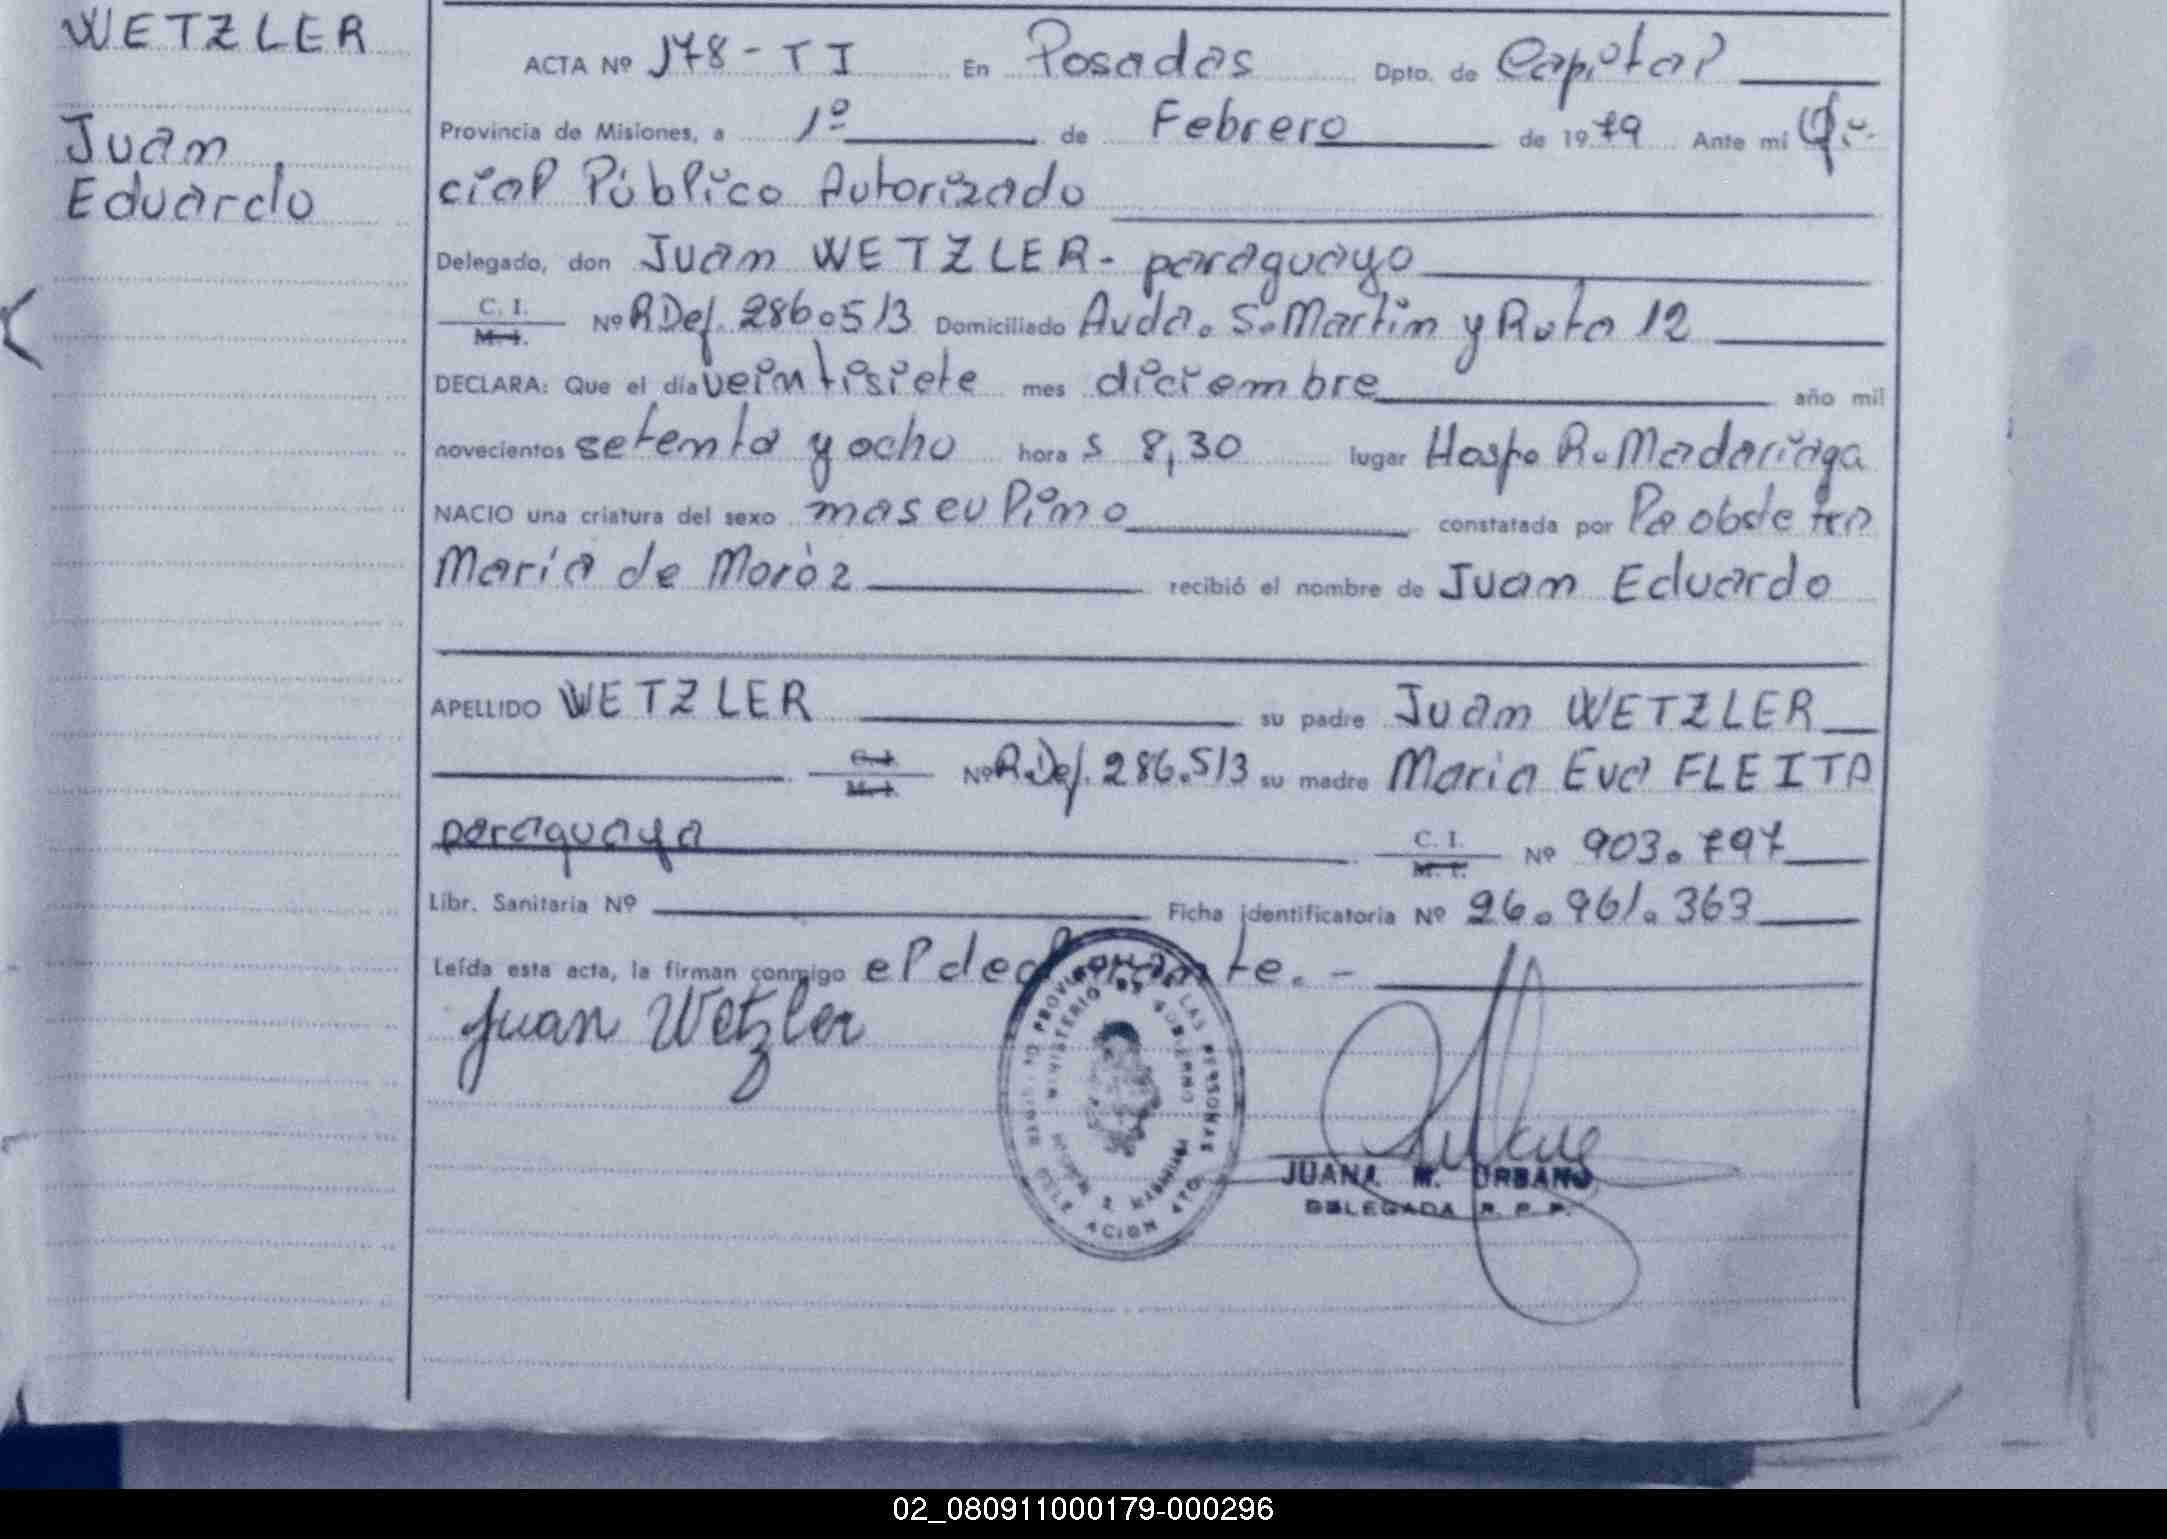 WETZLER
Juan
Eduardo
ACTA Nº 178 - TI En Posadas Dpto. de Capital
Provincia de Misiones, a 1º de Febrero de 1979 Ante mi Ofi-
cial Público Autorizado
Delegado, don Juan WETZLER - paraguayo
C. I.
M. I. Nº R.Def. 286.513 Domiciliado Avda. S. Martin y Ruta 12
DECLARA: Que el día veintisiete mes diciembre año mil
novecientos setenta y ocho hora s 8,30 lugar Hosp. R. Madariaga
NACIO una criatura del sexo masculino constatada por la obstetra
María de Moròz recibió el nombre de Juan Eduardo
APELLIDO WETZLER su padre Juan WETZLER
C. I.
M. I. Nº R.Def. 286.513 su madre Maria Eva FLEITA
paraguaya C. I.
M. I. Nº 903.797
Libr. Sanitaria Nº Ficha identificatoria Nº 26.961.363
Leída esta acta, la firman conmigo el declarante. -
Juan Wetzler
MINISTERIO DE GOBIERNO
LAS PERSONAS
DELEGACION
MISIONES
JUANA M. URBANO
DELEGADA R. P. P.
02_080911000179-000296